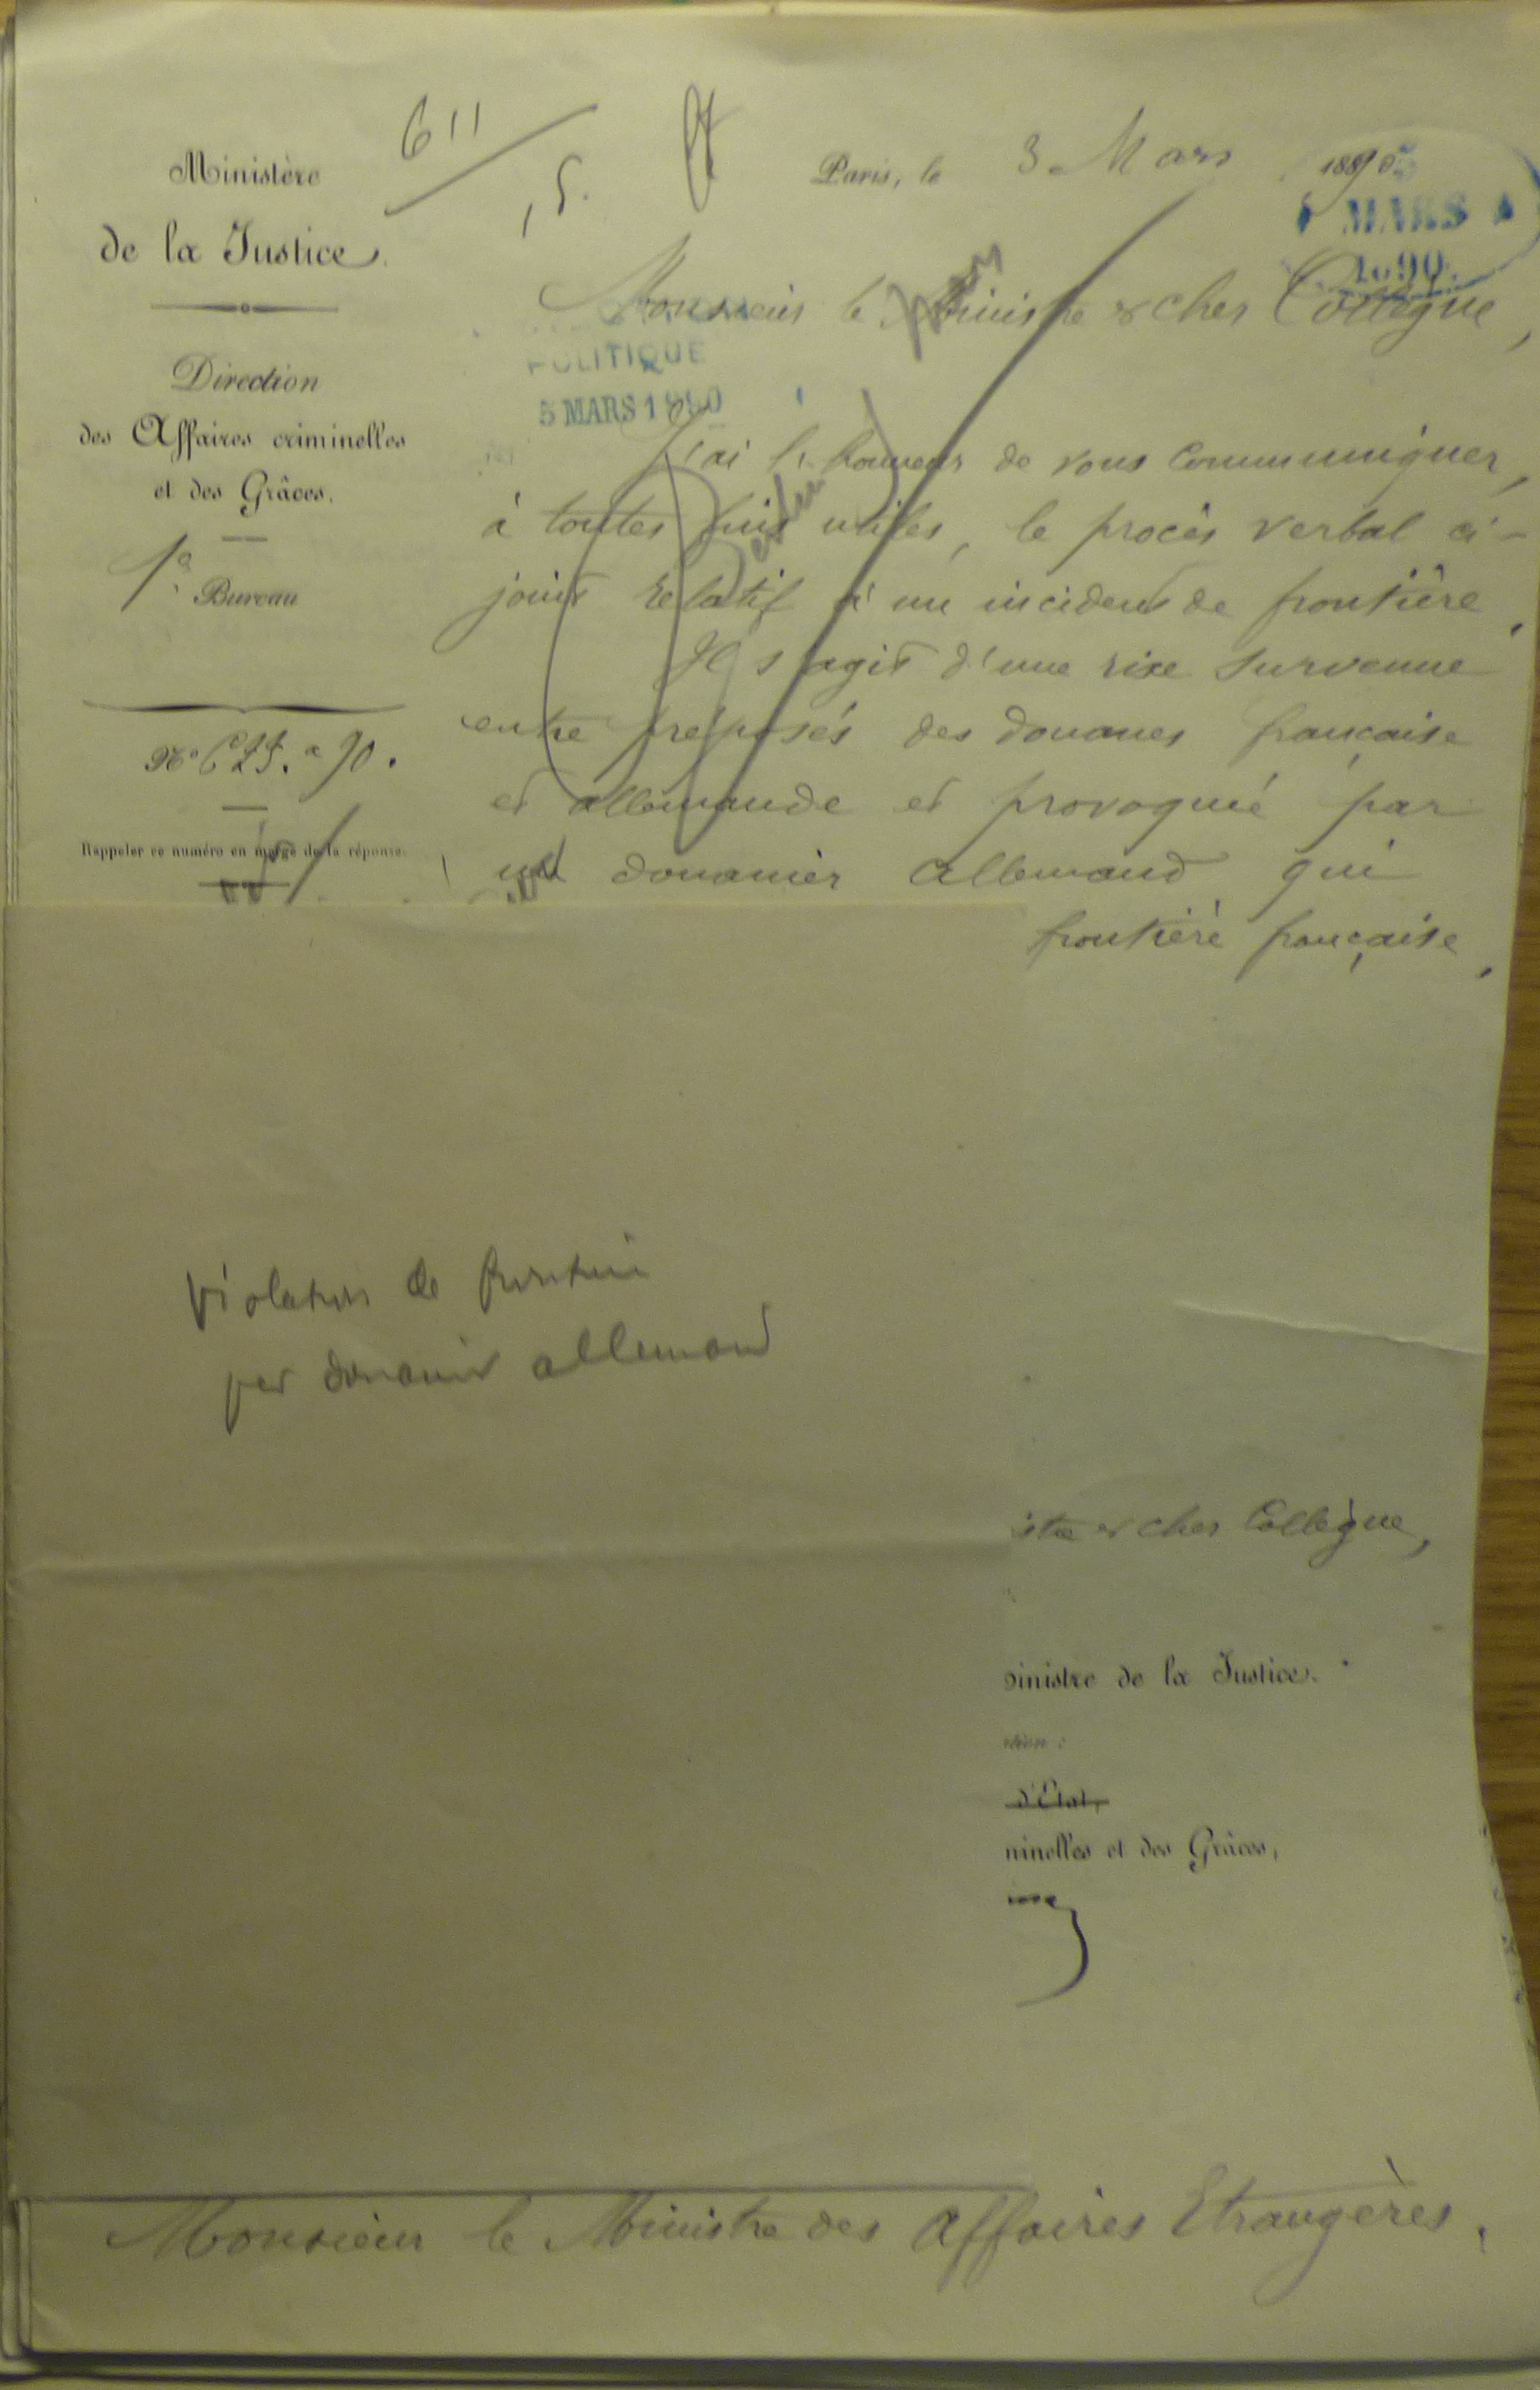 611
15.
Ministère
de la Justice.
Direction
des Affaires criminelles
et des Grâces.
1e Bureau
No
a 90.
Rappeler ce numéro en marge de la réponse.
Paris, le 3 Mars 1890
MARS
1890
POLITIQUE
5 MARS 1890
Monsieur le Ministre & cher Collègue,
J'ai l'honneur de vous communiquer,
à toutes fins utiles, le procès verbal ci-
joint relatif à un incident de frontière.
Il s'agit d'une rixe survenue
entre préposés des douanes française
et allemande et provoqué par
un douanier allemand qui
frontière française,
Violation de frontière
par douanier allemand
istre & cher Collègue,
inistre de la Justice.
d'Etat,
minelles et des Grâces,
Monsieur le Ministre des Affaires Etrangères.